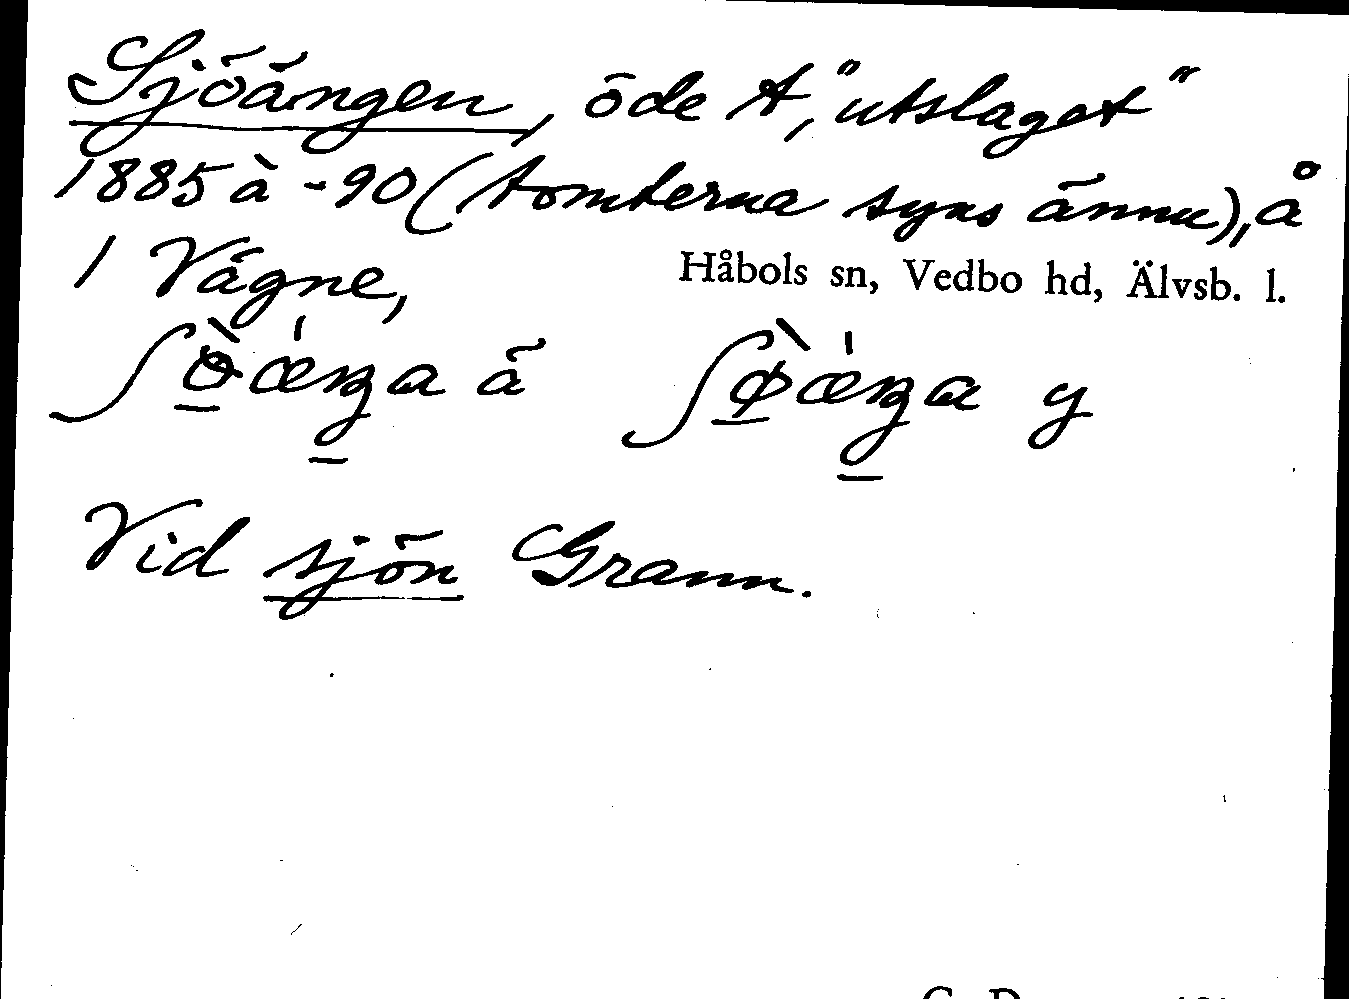 Sjöängen, öde t, "utslaget"
1885 à -90 (tomterna syns ännu), å
1 Vägne,
Håbols sn, Vedbo hd, Älvsb. l.
Vid sjön Grann.